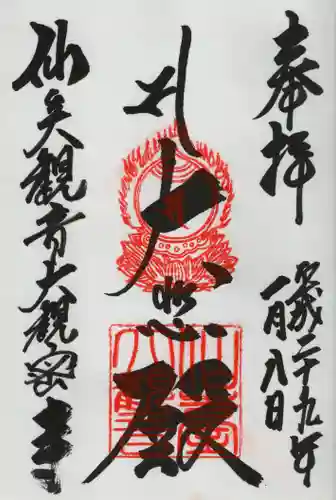 奉拝
平成二十九年
一月八日
大悲殿
仙台大觀音大観密寺